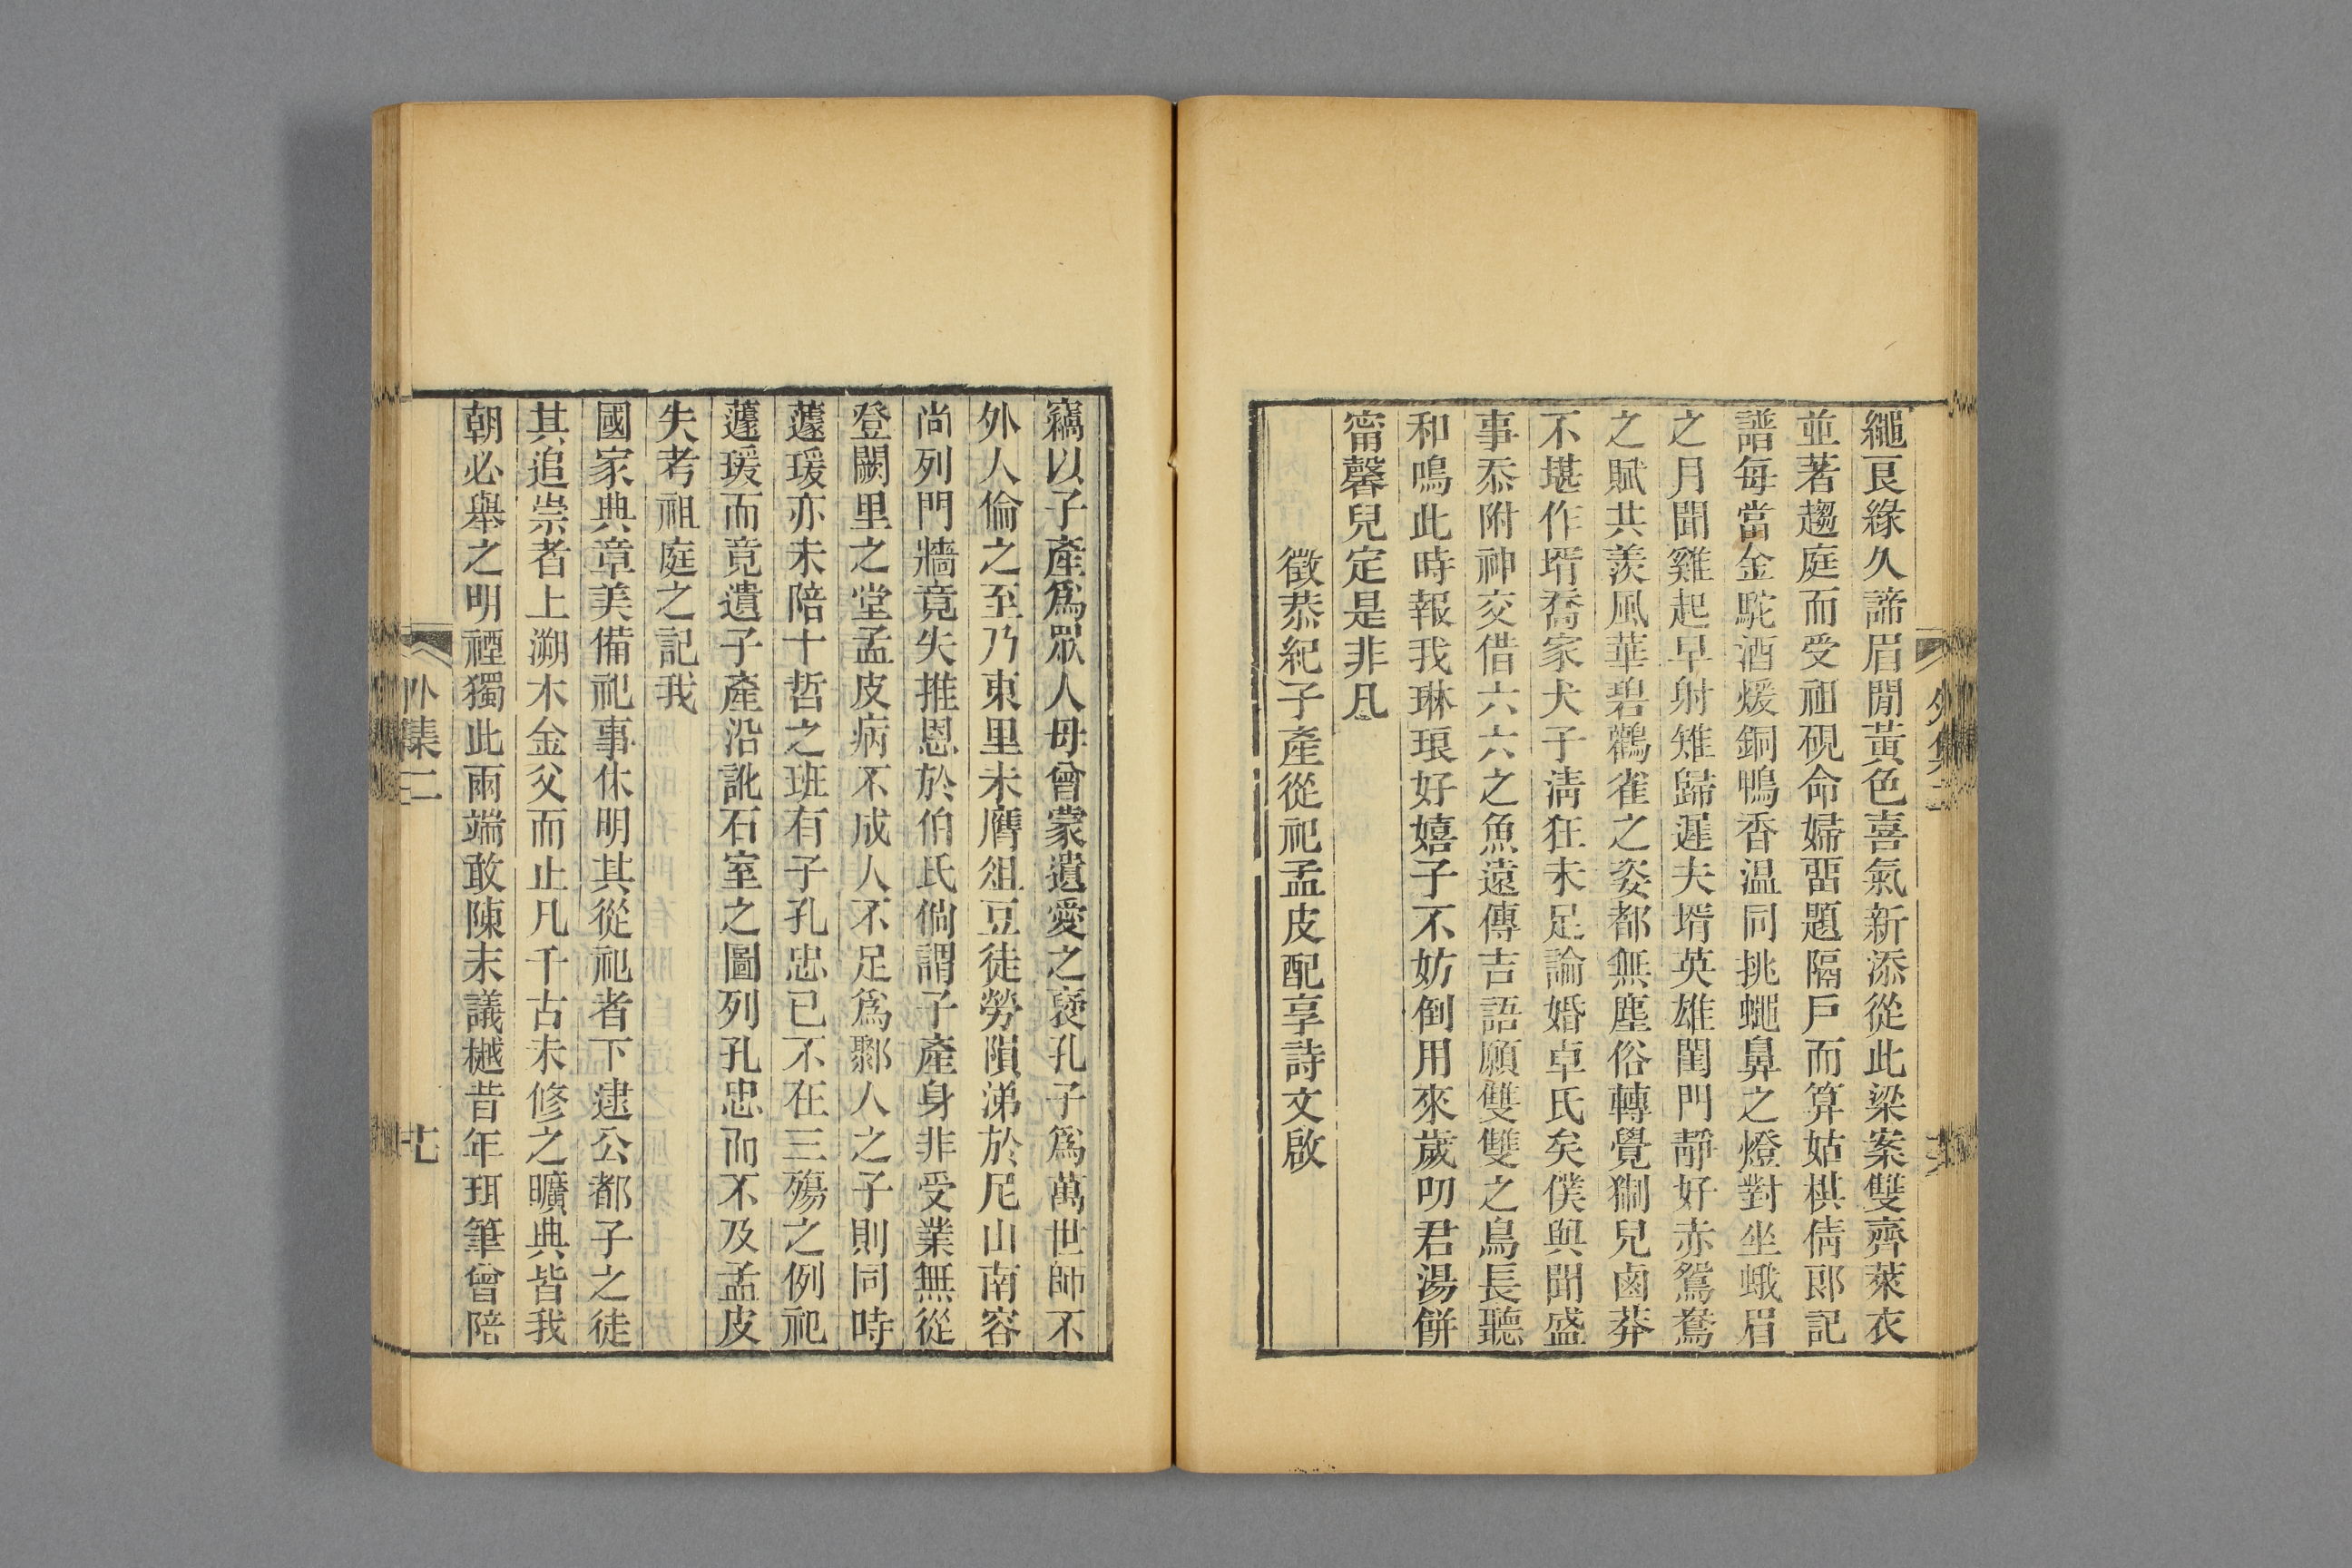 繩艮緣久諦眉閒黃色喜氣新添從此梁案雙齊萊衣
並著趨庭而受祖硯命婦畱題隔戶而算姑棋倩郎記
譜每當金駝酒煖銅鴨香温同挑蠅鼻之燈對坐蛾眉
之月聞雞起早射雉歸遲夫壻英雄閨門靜好赤鴛鴦
之賦共羨風華碧鸛雀之姿都無塵俗轉覺猘兒鹵莽
不堪作壻喬家犬子淸狂未足論婚卓氏矣僕與聞盛
事忝附神交借六六之魚遠傳吉語願雙雙之鳥長聽
和鳴此時報我琳琅好嬉子不妨倒用來歲叨君湯餅
甯馨兒定是非凡
徵恭紀子產從祀孟皮配享詩文啟
外集二
竊以子產爲眾人母曾蒙遺愛之褒孔子爲萬世師不
外人倫之至乃東里未膺俎豆徒勞隕涕於尼山南容
尚列門牆竟失推恩於伯氏倘謂子產身非受業無從
登闕里之堂孟皮病不成人不足爲鄹人之子則同時
蘧瑗亦未陪十哲之班有子孔忠已不在三殤之例祀
蘧瑗而竟遺子產沿訛石室之圖列孔忠而不及孟皮
失考祖庭之記我
國家典章美備祀事休明其從祀者下逮公都子之徒
其追崇者上溯木金父而止凡千古未修之曠典皆我
朝必舉之明禋獨此兩端敢陳末議樾昔年珥筆曾陪
外集二
十七